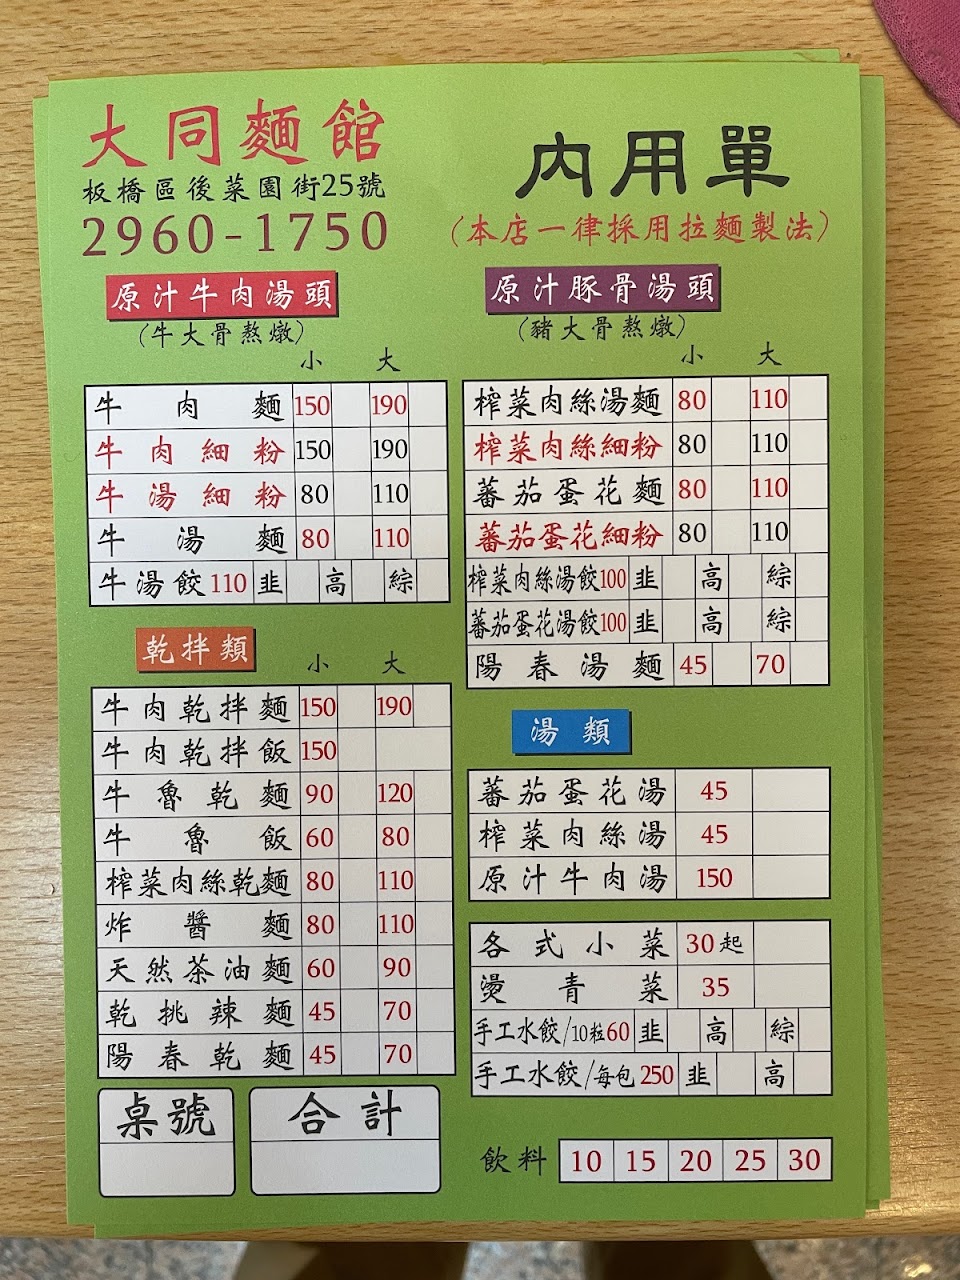 大同麵館
板橋區後菜園街25號
2960-1750
內用單
(本店一律採用拉麵製法)
原汁牛肉湯頭
(牛大骨熬燉)
小 大
牛肉麵 150 190
牛肉細粉 150 190
牛湯細粉 80 110
牛湯麵 80 110
牛湯餃 110 韭 高 綜
乾拌類
小 大
牛肉乾拌麵 150 190
牛肉乾拌飯 150
牛魯乾麵 90 120
牛魯飯 60 80
榨菜肉絲乾麵 80 110
炸醬麵 80 110
天然茶油麵 60 90
乾挑辣麵 45 70
陽春乾麵 45 70
桌號 合計
原汁豚骨湯頭
(豬大骨熬燉)
小 大
榨菜肉絲湯麵 80 110
榨菜肉絲細粉 80 110
蕃茄蛋花麵 80 110
蕃茄蛋花細粉 80 110
榨菜肉絲湯餃 100 韭 高 綜
蕃茄蛋花湯餃 100 韭 高 綜
陽春湯麵 45 70
湯類
蕃茄蛋花湯 45
榨菜肉絲湯 45
原汁牛肉湯 150
各式小菜 30起
燙青菜 35
手工水餃/10粒 60 韭 高 綜
手工水餃/每包 250 韭 高
飲料 10 15 20 25 30